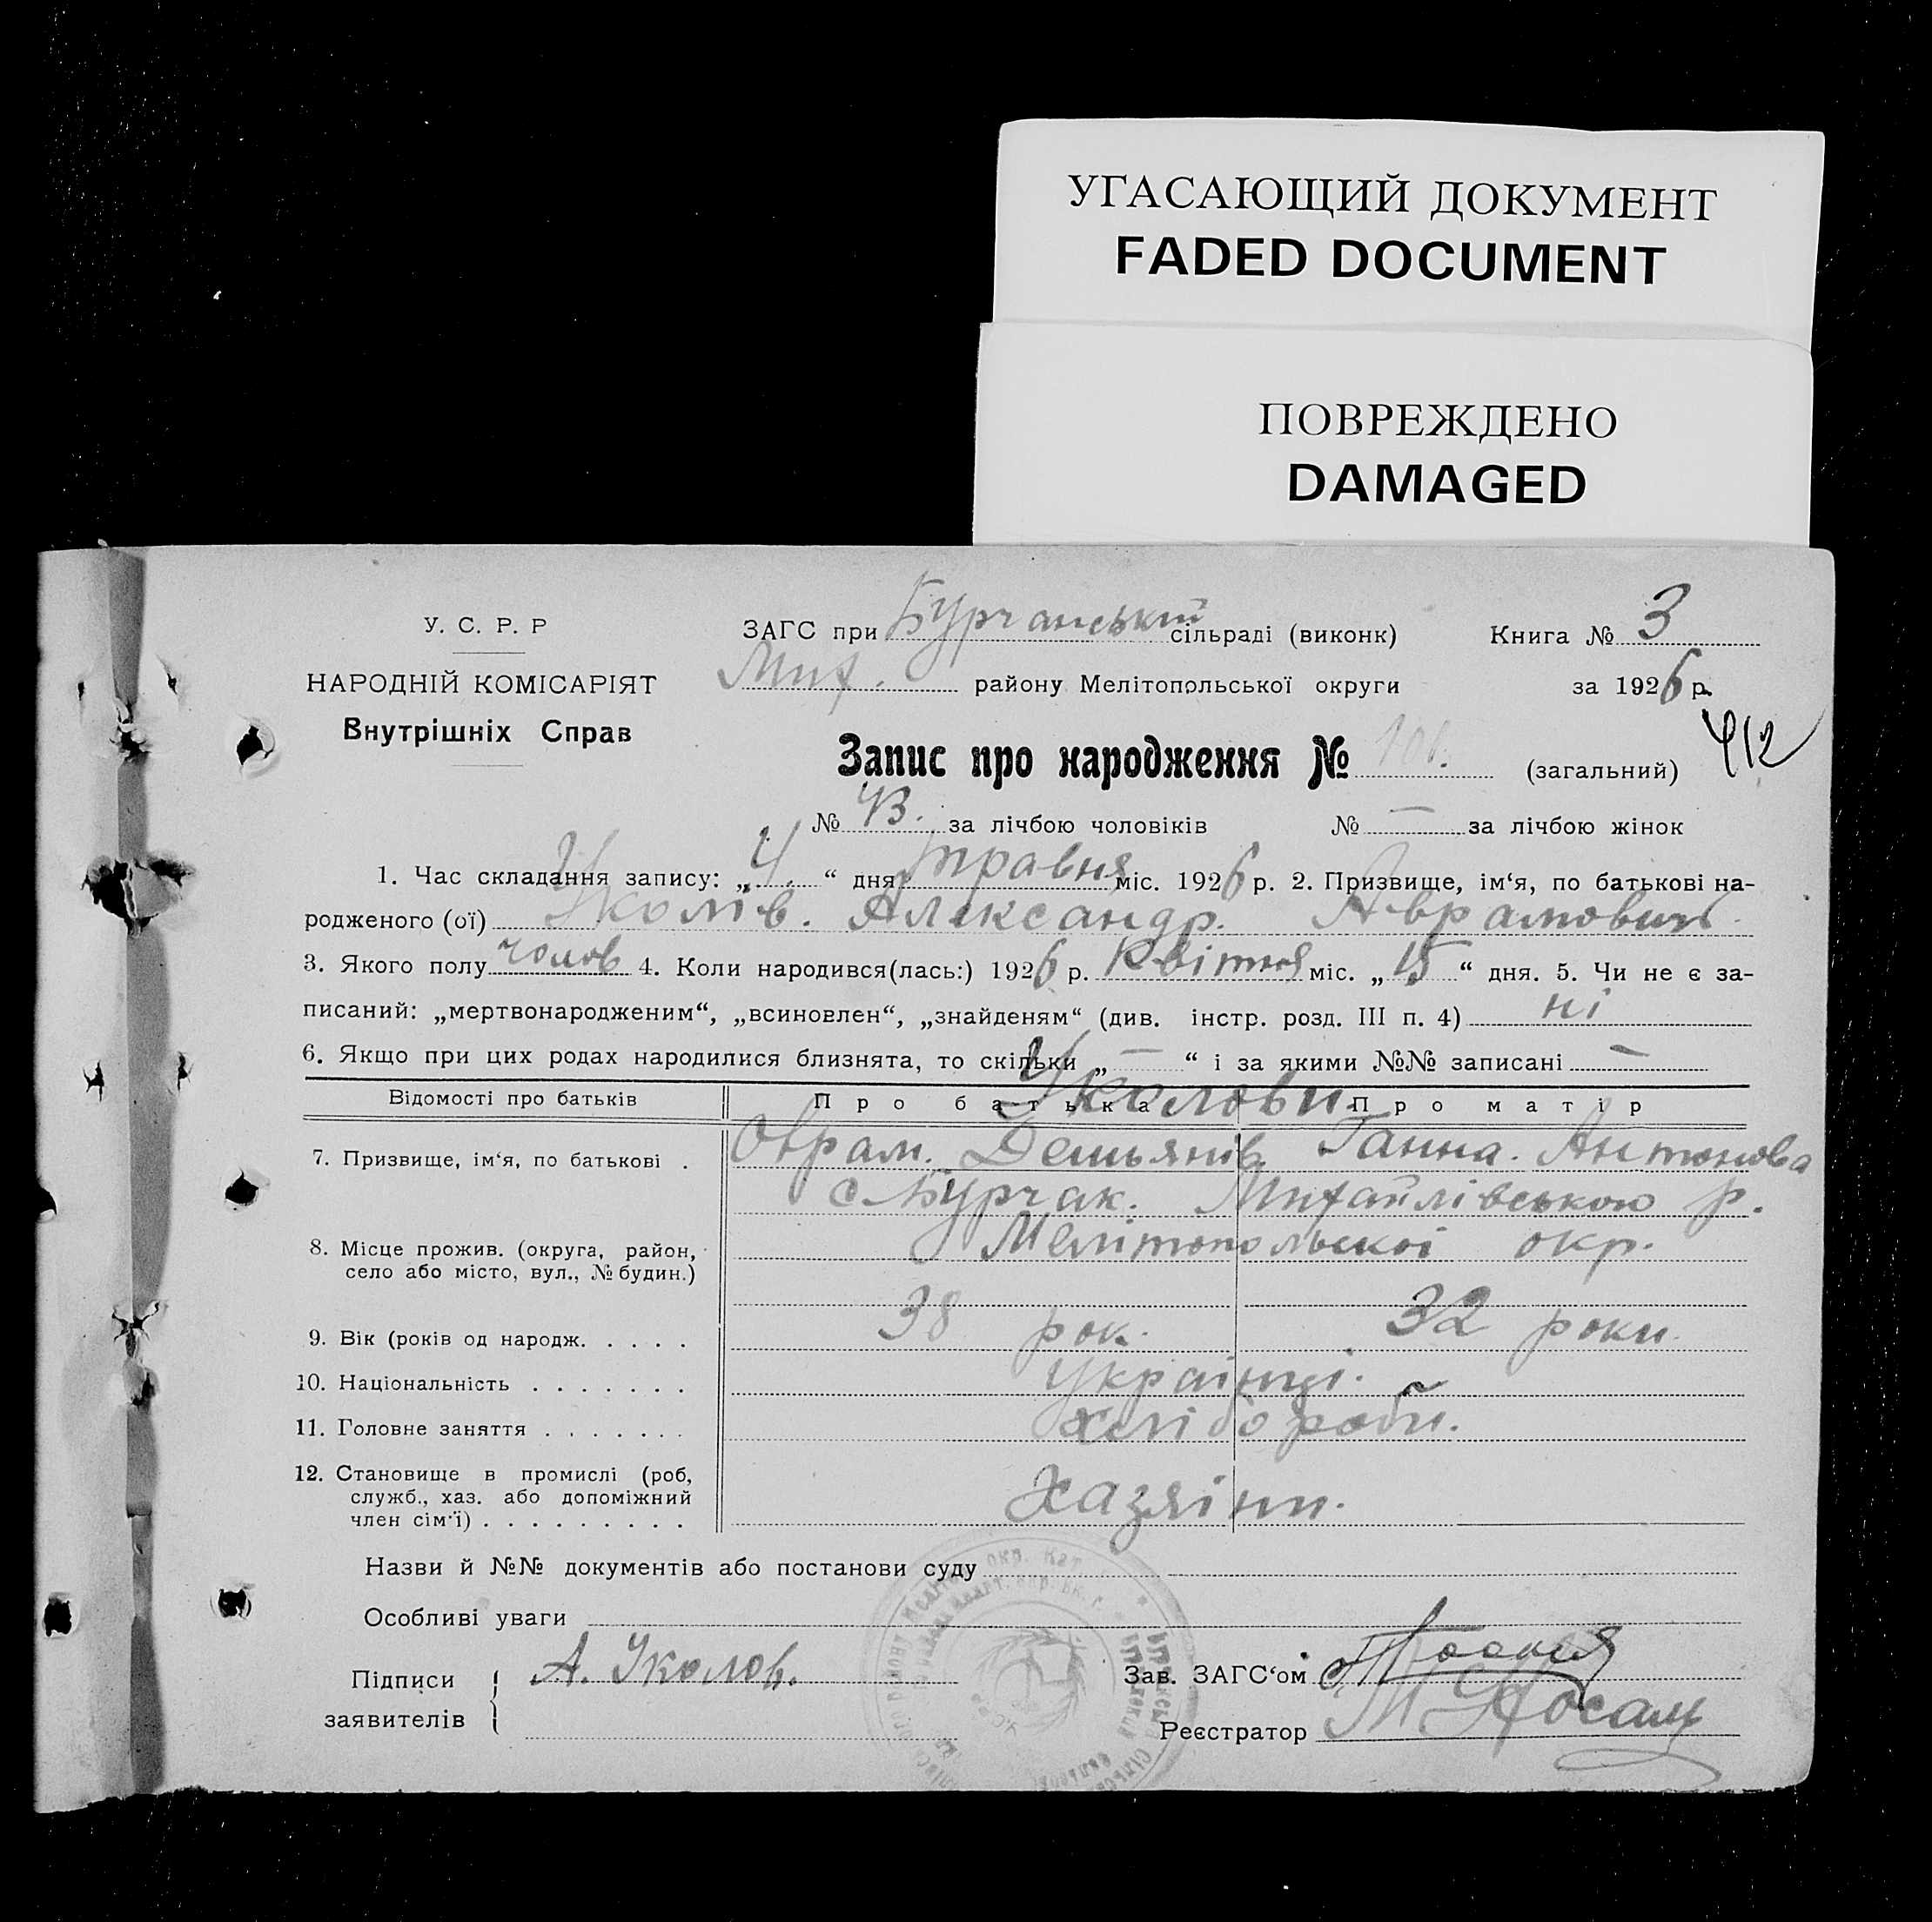 УГАСАЮЩИЙ ДОКУМЕНТ
FADED DOCUMENT
ПОВРЕЖДЕНО
DAMAGED
У. С. Р. Р
НАРОДНІЙ КОМІСАРІЯТ
Внутрішніх Справ
ЗАГС при Бурчанській сільраді (виконк) Книга № 3
Мих. району Мелітопольської округи за 1926 р.
412
Запис про народження № 101. (загальний)
№ 43. за лічбою чоловіків № — за лічбою жінок
1. Час складання запису: „4“ дня травня міс. 1926 р. 2. Призвище, ім‘я, по батькові на-
родженого (ої) Уколів. Александр. Аврамович
3. Якого полу чолов 4. Коли народився(лась:) 1926 р. Квітня міс. „15“ дня. 5. Чи не є за-
писаний: „мертвонародженим“, „всиновлен“, „знайденям“ (див. інстр. розд. III п. 4) ні
6. Якщо при цих родах народилися близнята, то скільки „—“ і за якими №№ записані —
Відомості про батьків Про батька Про матір
Уколови
7. Призвище, ім‘я, по батькові . Оврам. Демьянів Ганна. Антонова
с Бурчак. Михайлівською р.
8. Місце прожив. (округа, район, Мелітопольскоі окр.
село або місто, вул., № будин.)
9. Вік (років од народж. . . . . 38 рок. 32 роки
10. Національність . . . . . . . українці.
11. Головне заняття . . . . . . . хлібороби.
12. Становище в промислі (роб,
служб., хаз. або допоміжний Хазяіни.
член сім‘ї) . . . . . . . . .
Назви й №№ документів або постанови суду
Особливі уваги
Підписи А. Уколов. Зав. ЗАГС‘ом
заявителів Реєстратор